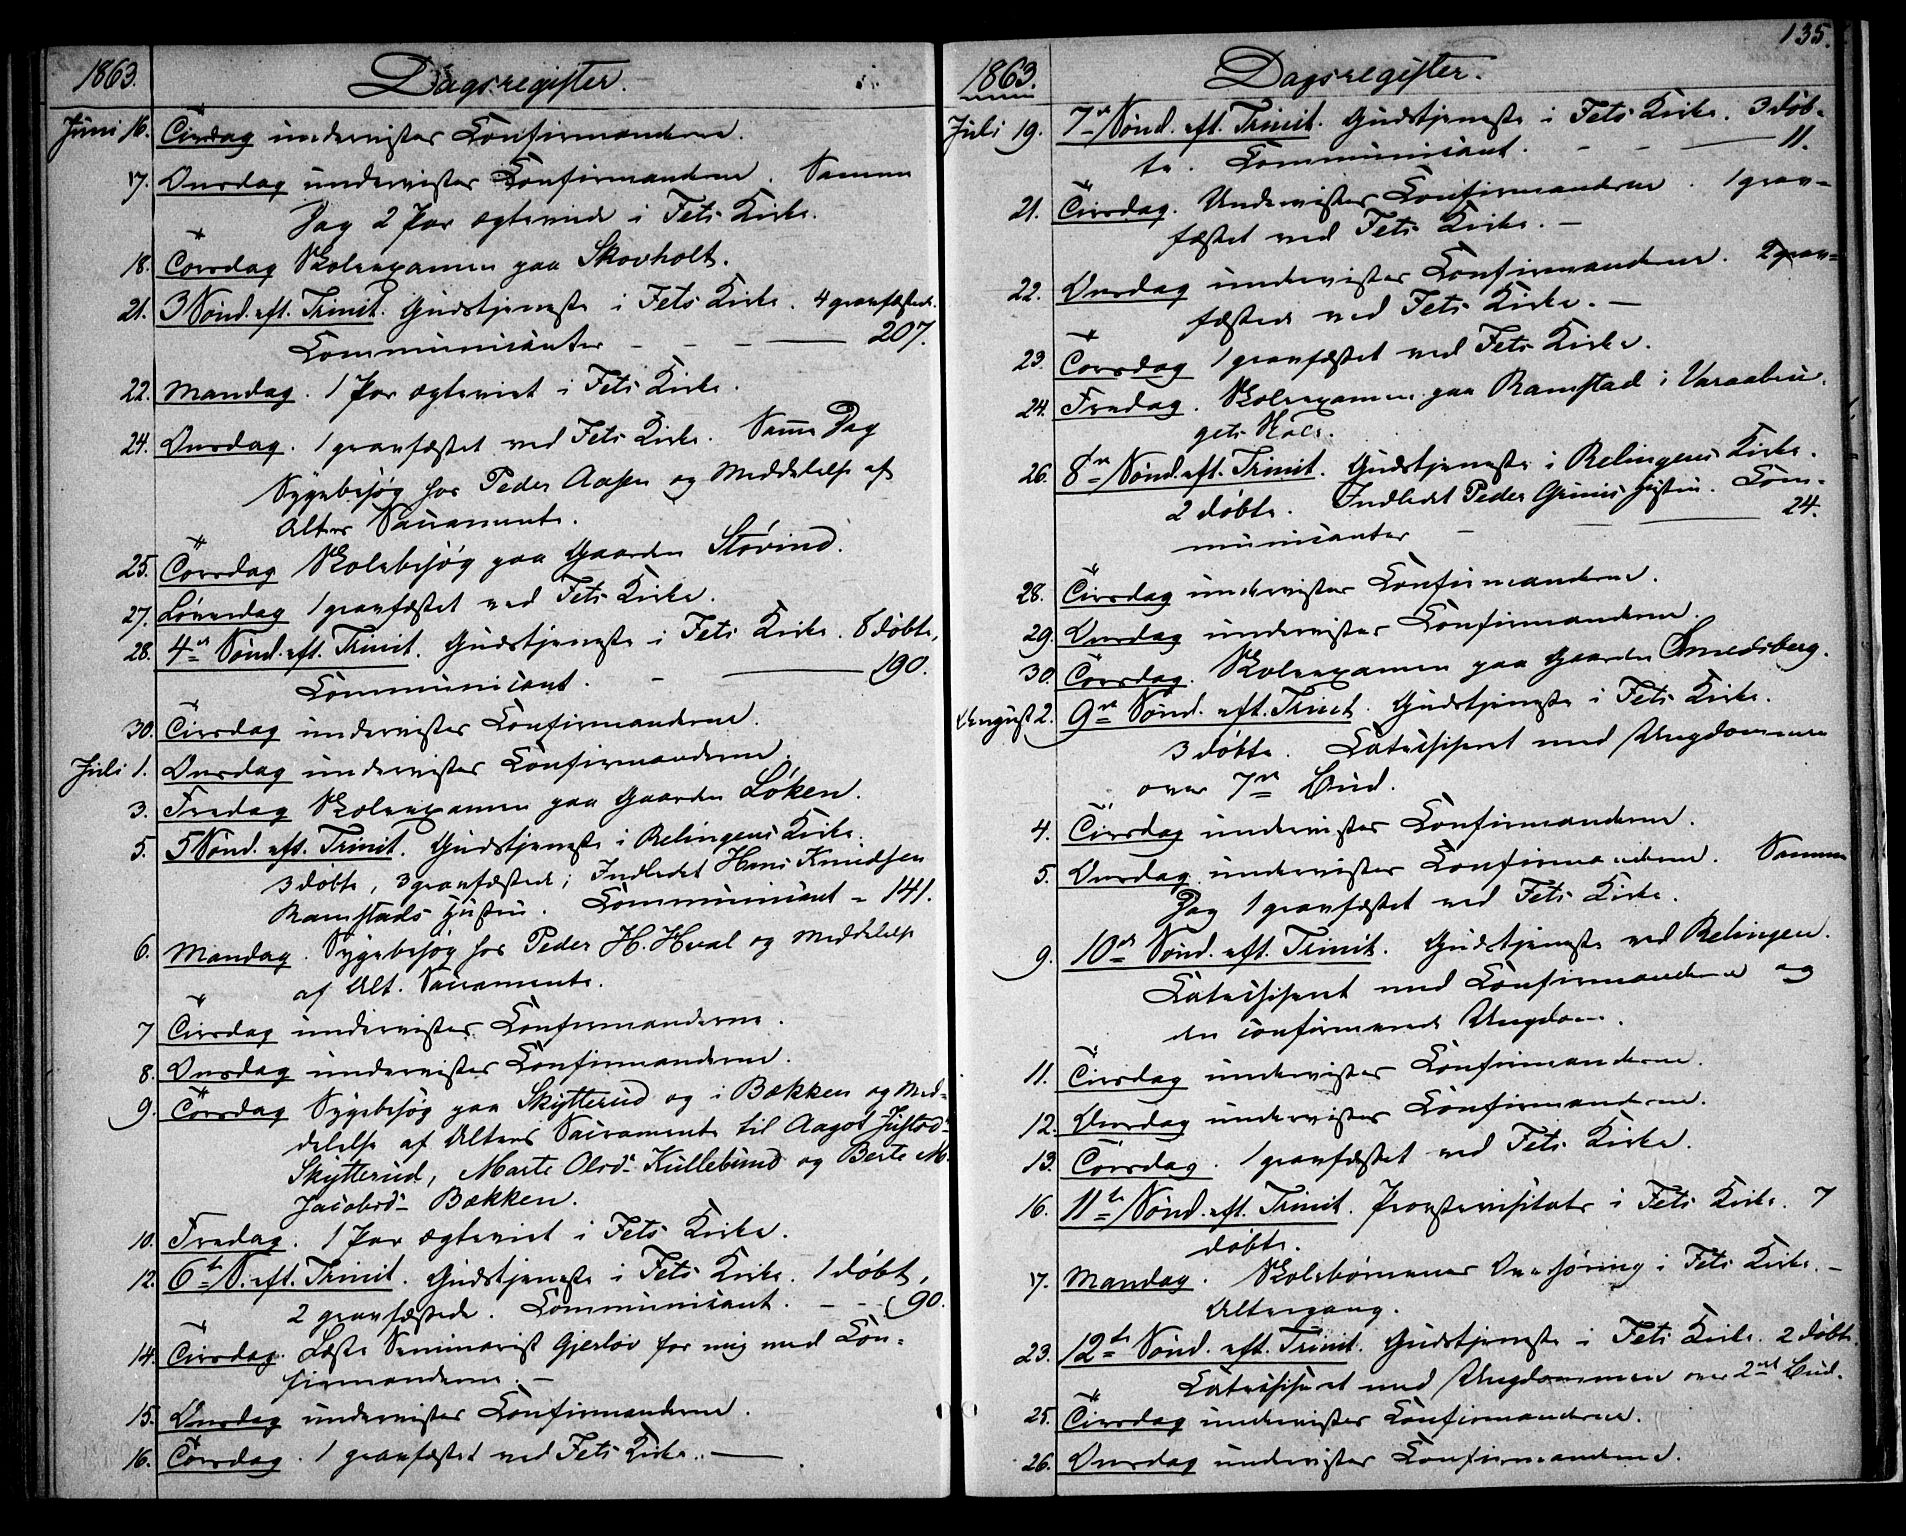 1863. Dagsregister.
Juni 16. Tirsdag undervistes Confirmanderne.
17. Onsdag undervistes Confirmanderne. Samme
Dag 2 Par ægteviede i Fets Kirke.
18. Torsdag Skoleexamen paa Skovholt.
21. 3 Sønd. eft. Trinit. Gudstjeneste i Fets Kirke. 4 gravfæstede.
Communicanter - - - 207.
22. Mandag. 1 Par ægteviet i Fets Kirke.
24. Onsdag. 1 gravfæstet ved Fets Kirke. Samme Dag
Sygebesøg hos Peder Aasen og Meddelelse af
Alters Sacramente.
25. Torsdag Skolebesøg paa Gaarden Støvind.
27. Løverdag 1 gravfæstet ved Fets Kirke.
28. 4de Sønd. eft. Trinit. Gudstjeneste i Fets Kirke. 8 døbte,
Communicant. - 190.
30. Tirsdag undervistes Confirmanderne.
Juli 1. Onsdag undervistes Confirmanderne.
3. Fredag Skoleexamen paa Gaarden Løken.
5. 5 Sønd. eft. Trinit. Gudstjeneste i Relingens Kirke.
3 døbte, 3 gravfæstede; Indledet Hans Knudsen
Ramstads Hustru. Communicant - 141.
6. Mandag. Sygebesøg hos Peder H. Hval og Meddelelse
af Alt. Sacramente.
7 Tirsdag undervistes Confirmanderne.
8. Onsdag undervistes Confirmanderne.
9. Torsdag Sygebesøg paa Skytterud og i Bækken og Med-
delelse af Alterets Sacramente til Aagot Justsd-
Skytterud, Marte Olsd- Kullebund og Berte M.
Jacobsd- Bækken.
10. Fredag. 1 Par ægteviet i Fets Kirke.
12. 6te S. eft. Trinit. Gudstjeneste i Fets Kirke. 1 døbt,
2 gravfæstede. Communicant. - - 90.
14. Tirsdag. Læste Seminarist Gjerløv for mig med Con-
firmanderne. -
15. Onsdag undervistes Confirmanderne.
16. Torsdag. 1 gravfæstet ved Fets Kirke. -
135.
1863. Dagsregister.
Juli 19. 7de Sønd. eft. Trinit. Gudstjeneste i Fets Kirke. 3 døb-
te. Communicant. - - 11.
21. Tirsdag. Undervistes Confirmanderne. 1 grav-
fæstet ved Fets Kirke. -
22. Onsdag undervistes Confirmanderne. 2 grav-
fæstede ved Fets Kirke. -
23. Torsdag 1 gravfæstet ved Fets Kirke.
24. Fredag. Skoleexamen paa Ramstad i Varaabru-
gets Skole.
26. 8de Sønd. eft. Trinit. Gudstjeneste i Relingens Kirke.
2 døbte. Indledet Peder Hustru. Com-
municanter - - 24.
28. Tirsdag undervistes Confirmanderne.
29. Onsdag undervistes Confirmanderne.
30. Torsdag. Skoleexamen paa Gaarden Smedsberg.
August 2. 9de Sønd. eft. Trinit. Gudstjeneste i Fets Kirke.
3 døbte. Catechiseret med Ungdommen
over 7de Bud.
4. Tirsdag undervistes Confirmanderne.
5. Onsdag undervistes Confirmanderne. Samme
Dag 1 gravfæstet ved Fets Kirke.
9. 10de Sønd. eft. Trinit. Gudstjeneste ved Relingen.
Catechiseret med Confirmanderne og
den confirmerede Ungdom.
11. Tirsdag undervistes Confirmanderne.
12. Onsdag undervistes Confirmanderne.
13. Torsdag. 1 gravfæstet ved Fets Kirke.
16. 11te Sønd. eft. Trinit. Provstevisitats i Fets Kirke. 7
døbte.
17. Mandag. Skolebørnenes Overhøring i Fets Kirke. -
Altergang.
23. 12te Sønd. eft. Trinit. Gudstjeneste i Fets Kirke. 2 døbte.
Catechiseret med Ungdommen over 2det Bud.
25. Tirsdag undervistes Confirmanderne.
26. Onsdag undervistes Confirmanderne.